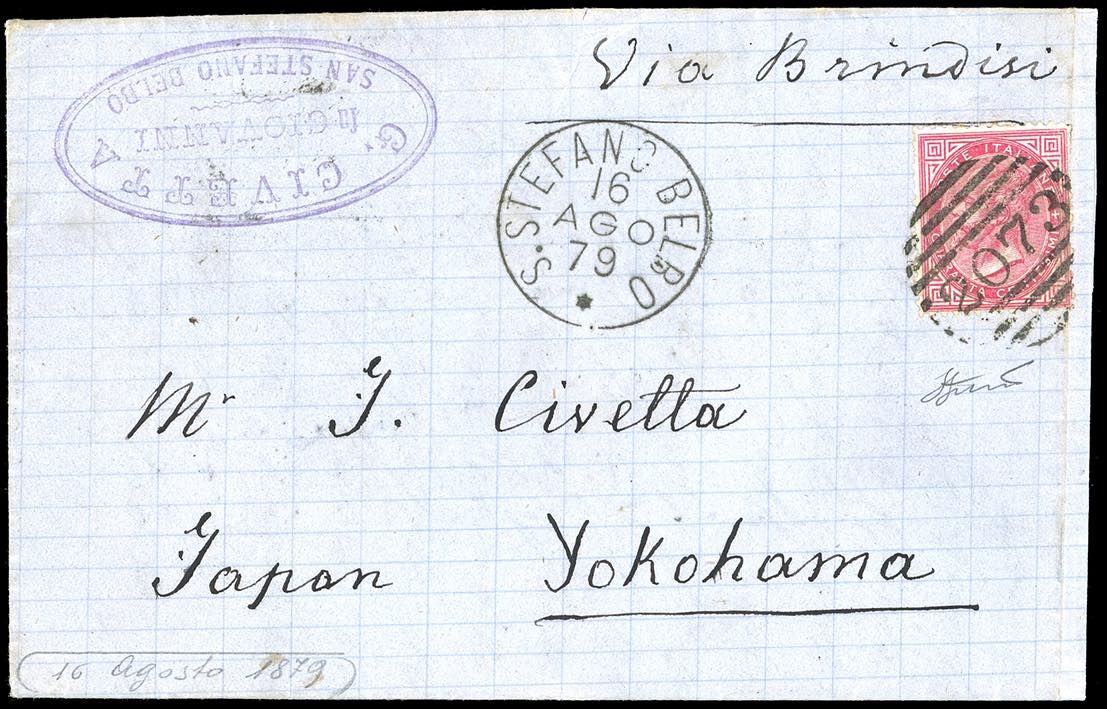 Via Brindisi
G. CIVETTA
fu GIOVANNI
SAN STEFANO BELBO
S. STEFANO BELBO
16
AGO
79
POSTE ITALIANE
QUARANTA CENTESIMI
2073
Mr J. Civetta
Japon Yokohama
16 Agosto 1879